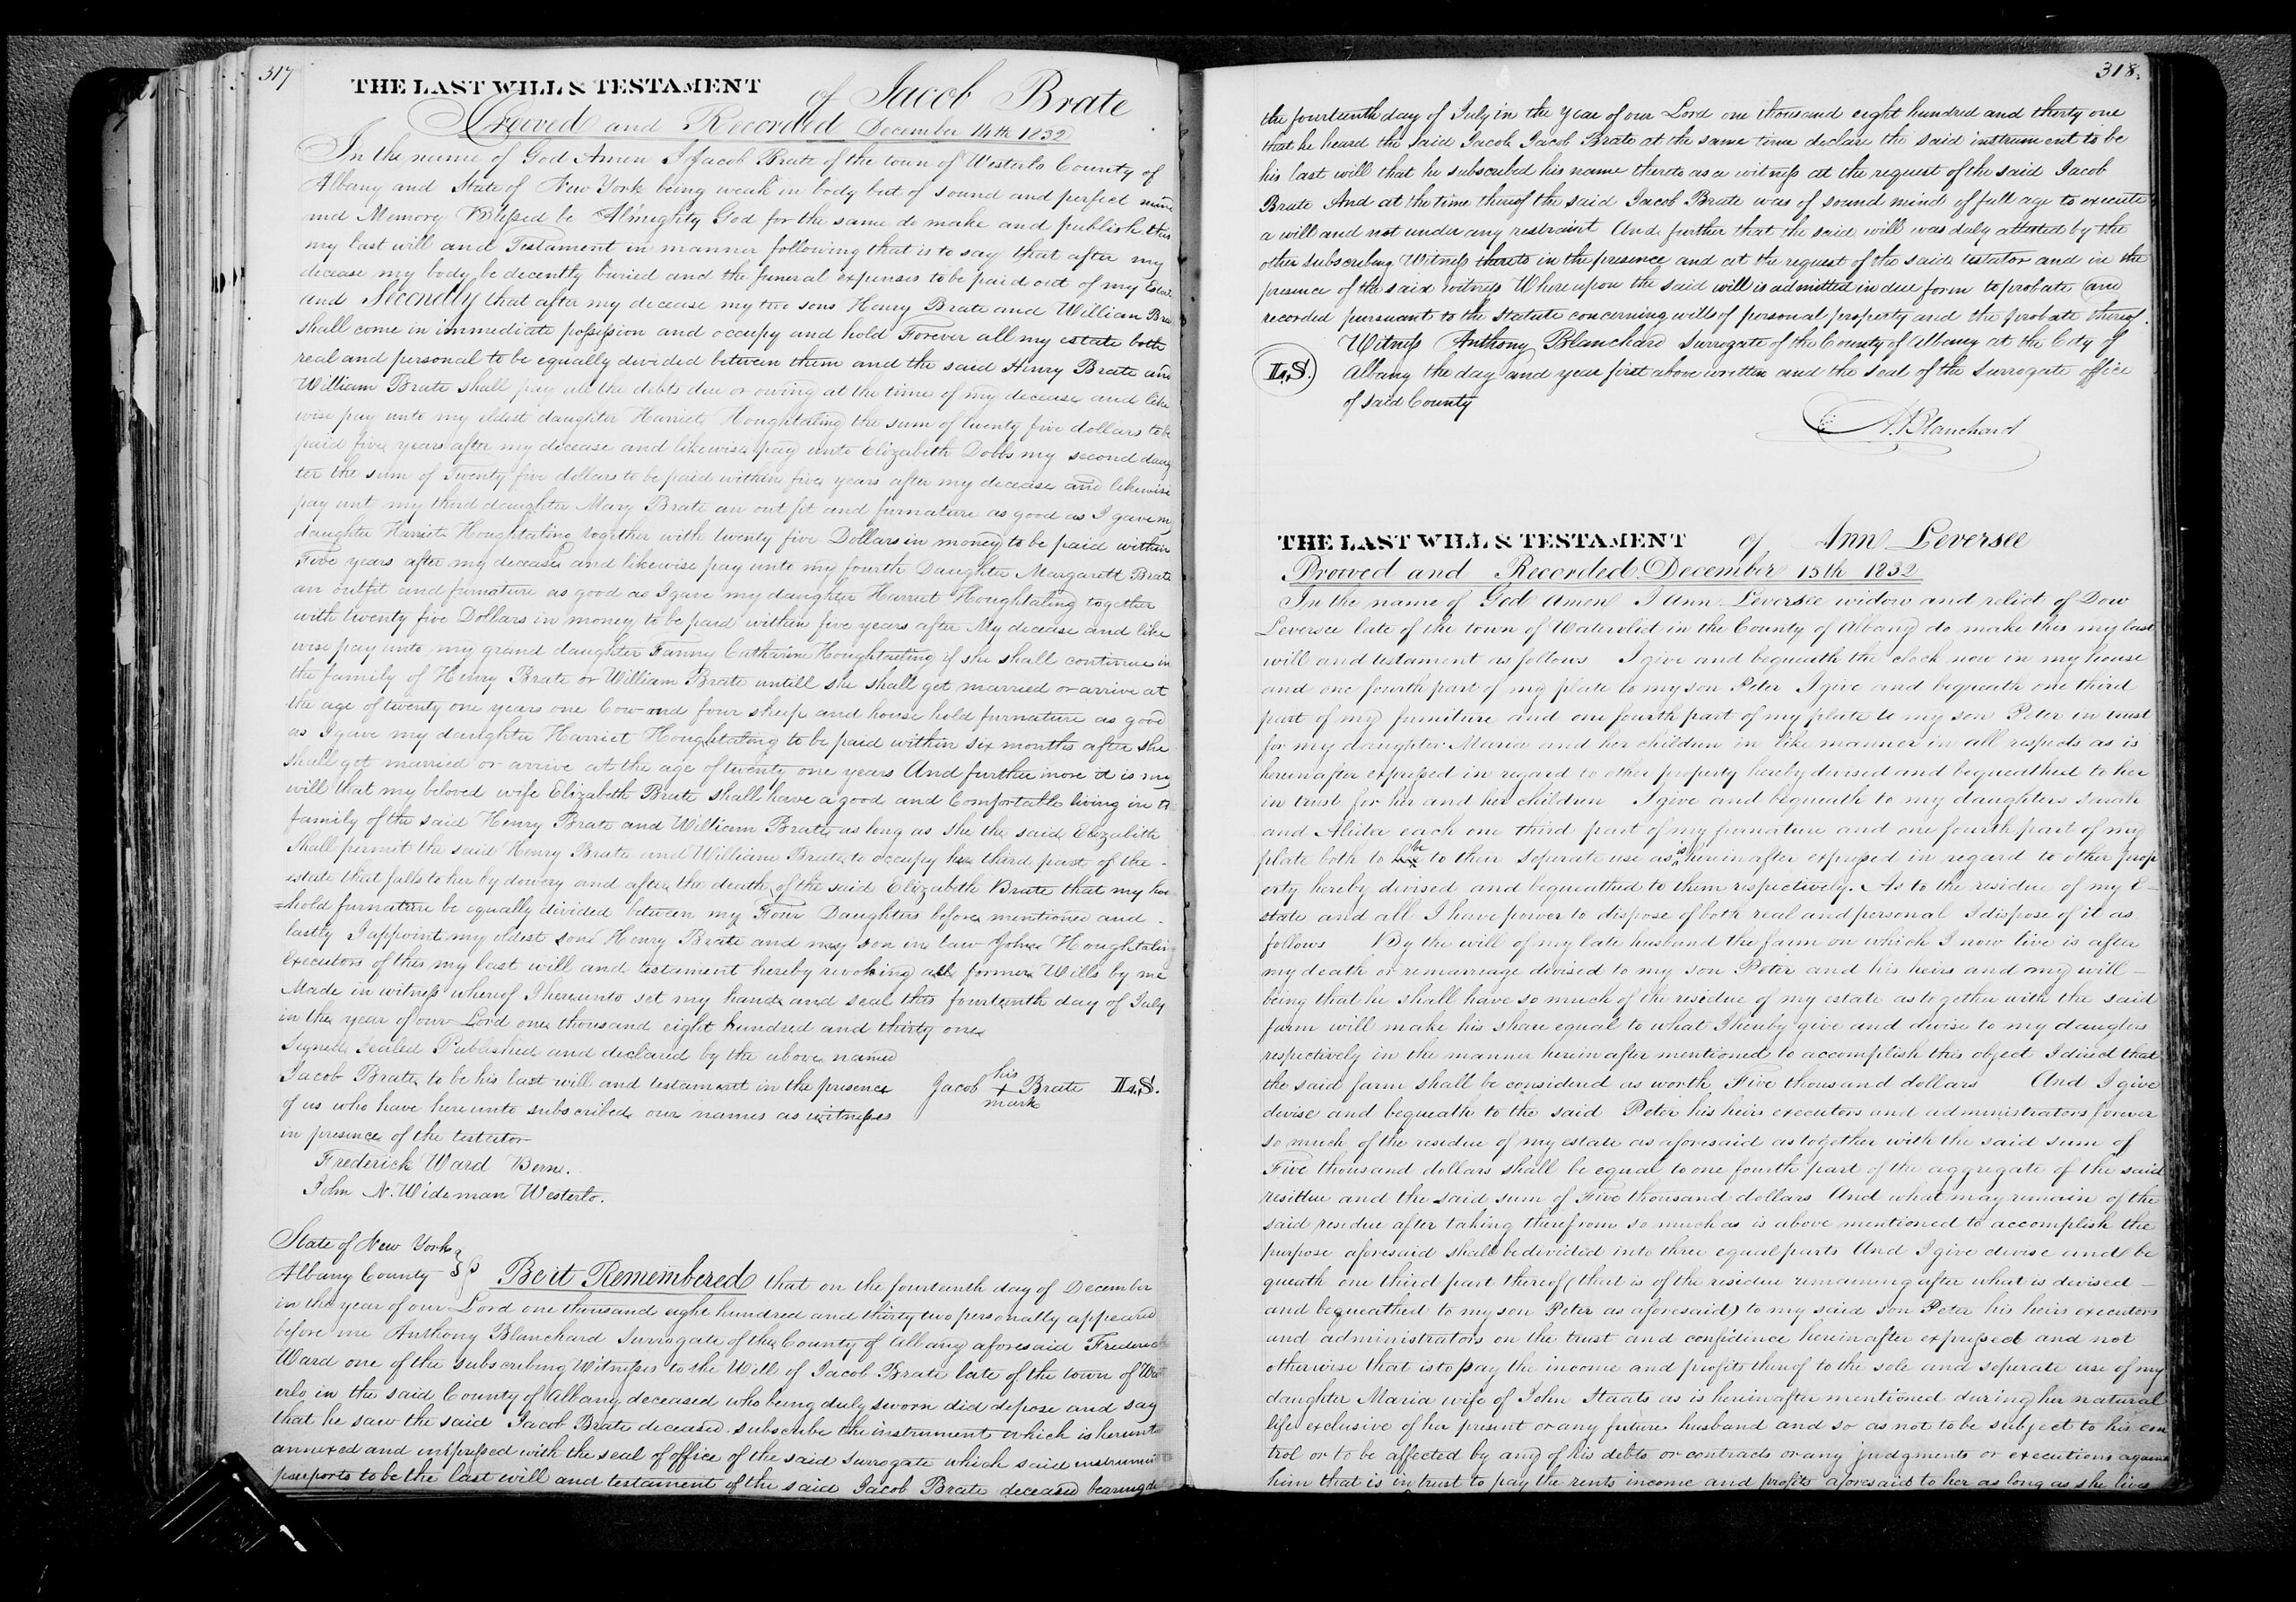 317
THE LAST WILL & TESTAMENT of Jacob Brate
Prooved and Recorded December 14th 1832
In the name of God Amen I Jacob Brate of the town of Westerlo County of
Albany and State of New York being weak in body but of sound and perfect mind
and Memory Blessed be Almighty God for the same do make and publish this
my last will and Testament in manner following that is to say that after my
decease my body be decently buried and the funeral expenses to be paid out of my Estate
and Secondly that after my decease my two sons Henry Brate and William Brate
shall come in immediate possession and occupy and hold Forever all my estate both
real and personal to be equally divided between them and the said Henry Brate and
William Brate shall pay all the debts due or owing at the time of my decease and like
wise pay unto my eldest daughter Harriet Houghtaling the sum of twenty five dollars to be
paid five years after my decease and likewise pay unto Elizabeth Dobbs my second daug
ter the sum of Twenty five dollars to be paid within five years after my decease and likewise
pay unt my third daughter Mary Brate an out fit and furnature as good as I gave my
daughter Harriet Houghtaling together with twenty five Dollars in money to be paid within
Five years after my decease and likewise pay unto my fourth Daughter Margarett Brate
an outfit and furnature as good as I gave my daughter Harriet Houghtaling together
with twenty five Dollars in money to be paid within five years after My decease and like
wise pay unto my grand daughter Fanny Catharine Houghtaling if she shall continue in
the family of Henry Brate or William Brate untill she shall get married or arrive at
the age of twenty one years one Cow and four sheep and house hold furnature as good
as I gave my daughter Harriet Houghtaling to be paid within six months after she
shall get married or arrive at the age of twenty one years And further more it is my
will that my beloved wife Elizabeth Brate shall have a good and Comfortable living in the
family of the said Henry Brate and William Brate as long as She the said Elizabeth
Shall permit the said Henry Brate and William Brate to occupy her third part of the
estate that falls to her by dowery and after the death of the said Elizabeth Brate that my hou
=hold furnature be equally divided between my Four Daughters before mentioned and
lastly I appoint my oldest son Henry Brate and my son in law John Houghtaling
Executors of this my last will and testament hereby revoking all former Wills by me
Made in witness whereof I hereunto set my hand and seal this fourteenth day of July
in the year of our Lord one thousand eight hundred and thirty one
Signed Sealed Published and declared by the above named
Jacob Brate to be his last will and testament in the presence Jacob his + mark Brate L.S.
of us who have here unto subscribed our names as witnesses
in presence of the testator
Frederick Ward Bern.
John N. Wideman Westerlo.
State of New York
Albany County } SS Be it Remembered that on the fourteenth day of December
in the year of our Lord one thousand eight hundred and thirty two personally appeared
before me Anthony Blanchard Surrogate of the County of Albany aforesaid Frederick
Ward one of the subscribing Witnesses to the Will of Jacob Brate late of the town of West
erlo in the said County of Albany deceased who being duly sworn did depose and say
that he saw the said Jacob Brate deceased subscribe the instrument which is hereunto
annexed and impressed with the seal of office of the said Surrogate which said instrument
purports to be the last will and testament of the said Jacob Brate deceased bearing date
318.
the fourteenth day of July in the year of our Lord one thousand eight hundred and thirty one
that he heard the said Jacob Jacob Brate at the same time declare the said instrument to be
his last will that he subscribed his name thereto as a witness at the request of the said Jacob
Brate And at the time thereof the said Jacob Brate was of sound mind of full age to execute
a will and not under any restraint And further that the said will was duly attested by the
other subscribing Witness thereto in the presence and at the request of the said testator and in the
presence of the said witness Whereupon the said will is admitted in due form to probate and
recorded pursuant to the statute concerning wills of personal property and the probate thereof.
Witness Anthony Blanchard Surrogate of the County of Albany at the City of
L.S. Albany the day and year first above written and the seal of the Surrogate office
of said County
A. Blanchard
THE LAST WILL & TESTAMENT of Ann Leversee
Prooved and Recorded December 15th 1832
In the name of God Amen I Ann Leversee widow and relict of Dow
Leversee late of the town of Watervliet in the County of Albany do make this my last
will and testament as follows I give and bequeath the clock now in my house
and one fourth part of my plate to my son Peter I give and bequeath one third
part of my furniture and one fourth part of my plate to my son Peter in trust
for my daughter Maria and her children in like manner in all respects as is
hereinafter expressed in regard to other property hereby devised and bequeathed to her
in trust for her and her children I give and bequeath to my daughters Sarah
and Alida each one third part of my furnature and one fourth part of my
plate both to be to their seperate use as is hereinafter expressed in regard to other prop
erty hereby devised and bequeathed to them respectively. As to the residue of my E-
state and all I have power to dispose of both real and personal I dispose of it as
follows By the will of my late husband the farm on which I now live is after
my death or remarriage devised to my son Peter and his heirs and my will
being that he shall have so much of the residue of my estate as together with the said
farm will make his share equal to what I hereby give and devise to my daugters
respectively in the manner herein after mentioned to accomplish this object I direct that
the said farm shall be considered as worth Five thousand dollars And I give
devise and bequeath to the said Peter his heirs executors and administrators forever
so much of the residue of my estate as aforesaid as together with the said sum of
Five thousand dollars shall be equal to one fourth part of the aggregate of the said
residue and the said sum of Five thousand dollars And what may remain of the
said residue after taking therefrom so much as is above mentioned to accomplish the
purpose aforesaid shall be divided into three equal parts And I give devise and be
queath one third part thereof (that is of the residue remaining after what is devised
and bequeathed to my son Peter as aforesaid) to my said son Peter his heirs executors
and administrators on the trust and confidence hereinafter expressed and not
otherwise that is to pay the income and profits thereof to the sole and seperate use of my
daughter Maria wife of John Staats as is hereinafter mentioned during her natural
life exclusive of her present or any future husband and so as not to be subject to his con
trol or to be affected by any of his debts or contracts or any judgments or executions against
him that is in trust to pay the rents income and profits aforesaid to her as long as she lives